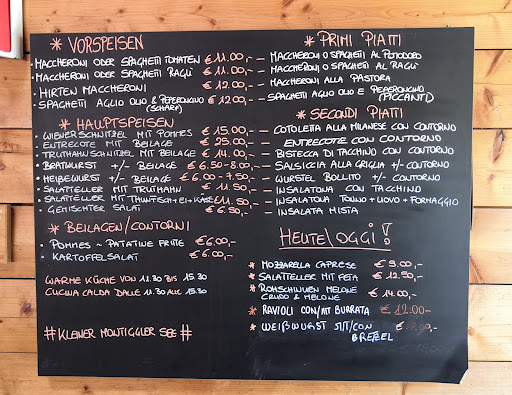 * VORSPEISEN * PRIMI PIATTI
• MACCHERONI ODER SPAGHETTI TOMATEN €11.00,- — MACCHERONI O SPAGHETTI AL POMODORO
• MACCHERONI ODER SPAGHETTI RAGÙ €11.00,- — MACCHERONI O SPAGHETTI AL RAGÙ
• HIRTEN MACCHERONI €12.00,- — MACCHERONI ALLA PASTORA
• SPAGHETTI AGLIO OLIO & PEPERONCINO €12.00,- — SPAGHETTI AGLIO OLIO E PEPERONCINO
(SCHARF) (PICCANTI)
* HAUPTSPEISEN * SECONDI PIATTI
• WIENERSCHNITZEL MIT POMMES €15.00,- — COTOLETTA ALLA MILANESE CON CONTORNO
• ENTRECOTE MIT BEILAGE €25.00,- — ENTRECOTE CON CONTORNO
• TRUTHAHNSCHNITZEL MIT BEILAGE €14.00,- — BISTECCA DI TACCHINO CON CONTORNO
• BRATWURST +/- BEILAGE €6.50-8.00,- — SALSICCIA ALLA GRIGLIA +/- CONTORNO
• HEIßEWURST +/- BEILAGE €6.00-7.50,- — WÜRSTEL BOLLITO +/- CONTORNO
• SALATTELLER MIT TRUTHAHN €11.50,- — INSALATONA CON TACCHINO
• SALATTELLER MIT THUNFISCH+EI+KÄSE €11.50,- — INSALATONA TONNO+UOVO+FORMAGGIO
• GEMISCHTER SALAT €6.50,- — INSALATA MISTA
* BEILAGEN/CONTORNI
• POMMES - PATATINE FRITTE €6.00,-
• KARTOFFELSALAT €6.00,-
WARME KÜCHE VON 11.30 BIS 15.30
CUCINA CALDA DALLE 11.30 ALLE 15.30
#KLEINER MONTIGGLER SEE#
HEUTE/OGGI!
* MOZZARELLA CAPRESE €9.00,-
* SALATTELLER MIT FETA €12.50,-
* ROHSCHINKEN MELONE
CRUDO & MELONE €14.00,-
* RAVIOLI CON/MIT BURRATA €12.00-
* WEIßWURST MIT/CON
BREZEL